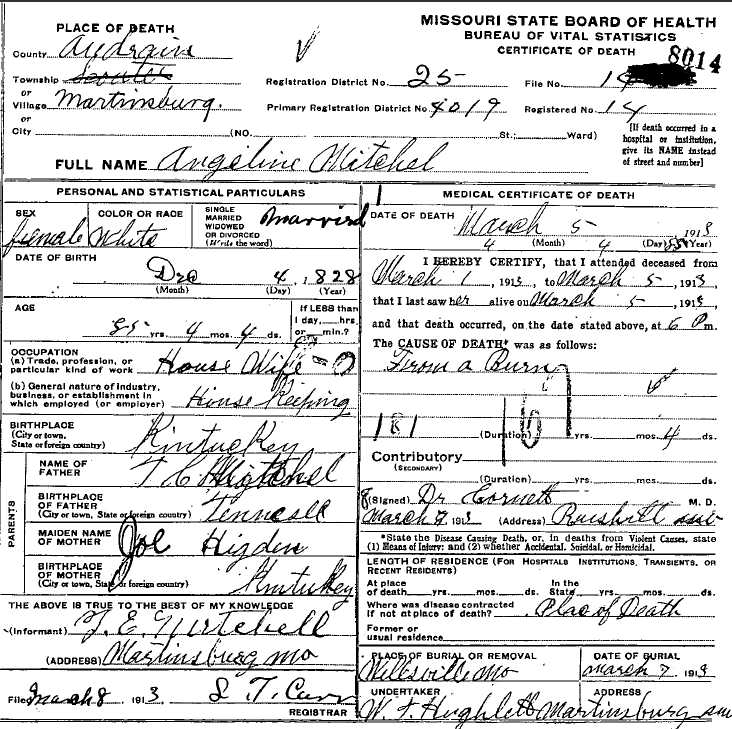 MISSOURI STATE BOARD OF HEALTH
BUREAU OF VITAL STATISTICS
CERTIFICATE OF DEATH
8014
PLACE OF DEATH
County Audrain
Township
or
Village Martinsburg.
or
City (NO. St.; Ward)
Registration District No. 25 File No. 14
Primary Registration District No. 4019 Registered No. 14
[If death occurred in a
hospital or institution,
give its NAME instead
of street and number]
FULL NAME Angeline Mitchel
PERSONAL AND STATISTICAL PARTICULARS
SEX female
COLOR OR RACE White
SINGLE
MARRIED
WIDOWED
OR DIVORCED
(Write the word)
Married
DATE OF BIRTH
Dec 4, 1828
(Month) (Day) (Year)
AGE
85 yrs. 4 mos. 4 ds.
If LESS than
1 day, hrs.
or min.?
OCCUPATION
(a) Trade, profession, or
particular kind of work House Wife
(b) General nature of industry,
business, or establishment in
which employed (or employer) House Keeping
BIRTHPLACE
(City or town,
State or foreign country) Kintuckey
PARENTS
NAME OF
FATHER
BIRTHPLACE
OF FATHER
(City or town, State or foreign country) Tennesee
MAIDEN NAME
OF MOTHER Higden
BIRTHPLACE
OF MOTHER
(City or town, State or foreign country) Kintuckey
THE ABOVE IS TRUE TO THE BEST OF MY KNOWLEDGE
(Informant) Mitchell
(ADDRESS) Martinsburg mo
Filed March 8 1913 S. T. Carr
REGISTRAR
MEDICAL CERTIFICATE OF DEATH
DATE OF DEATH March 5 1913
4 (Month) 4 (Day) (Year)
I HEREBY CERTIFY, that I attended deceased from
March 1, 1913, to March 5, 1913,
that I last saw her alive on March 5, 1913
and that death occurred, on the date stated above, at 6 P m.
The CAUSE OF DEATH* was as follows:
From a Burn
181
(Duration) yrs. mos. 4 ds.
Contributory
(SECONDARY)
(Duration) yrs. mos. ds.
(Signed) Dr Cornett M. D.
March 7 1913 (Address)
*State the Disease Causing Death, or, in deaths from Violent Causes, state
(1) Means of Injury; and (2) whether Accidental, Suicidal, or Homicidal.
LENGTH OF RESIDENCE (FOR HOSPITALS INSTITUTIONS, TRANSIENTS, OR
RECENT RESIDENTS)
At place
of death yrs. mos. ds.
In the
State yrs. mos. ds.
Where was disease contracted
if not at place of death? Place of Death
Former or
usual residence
PLACE OF BURIAL OR REMOVAL
Wellsville Mo
DATE OF BURIAL
March 7 1913
UNDERTAKER
W. F. Hughlett
ADDRESS
Martinsburg